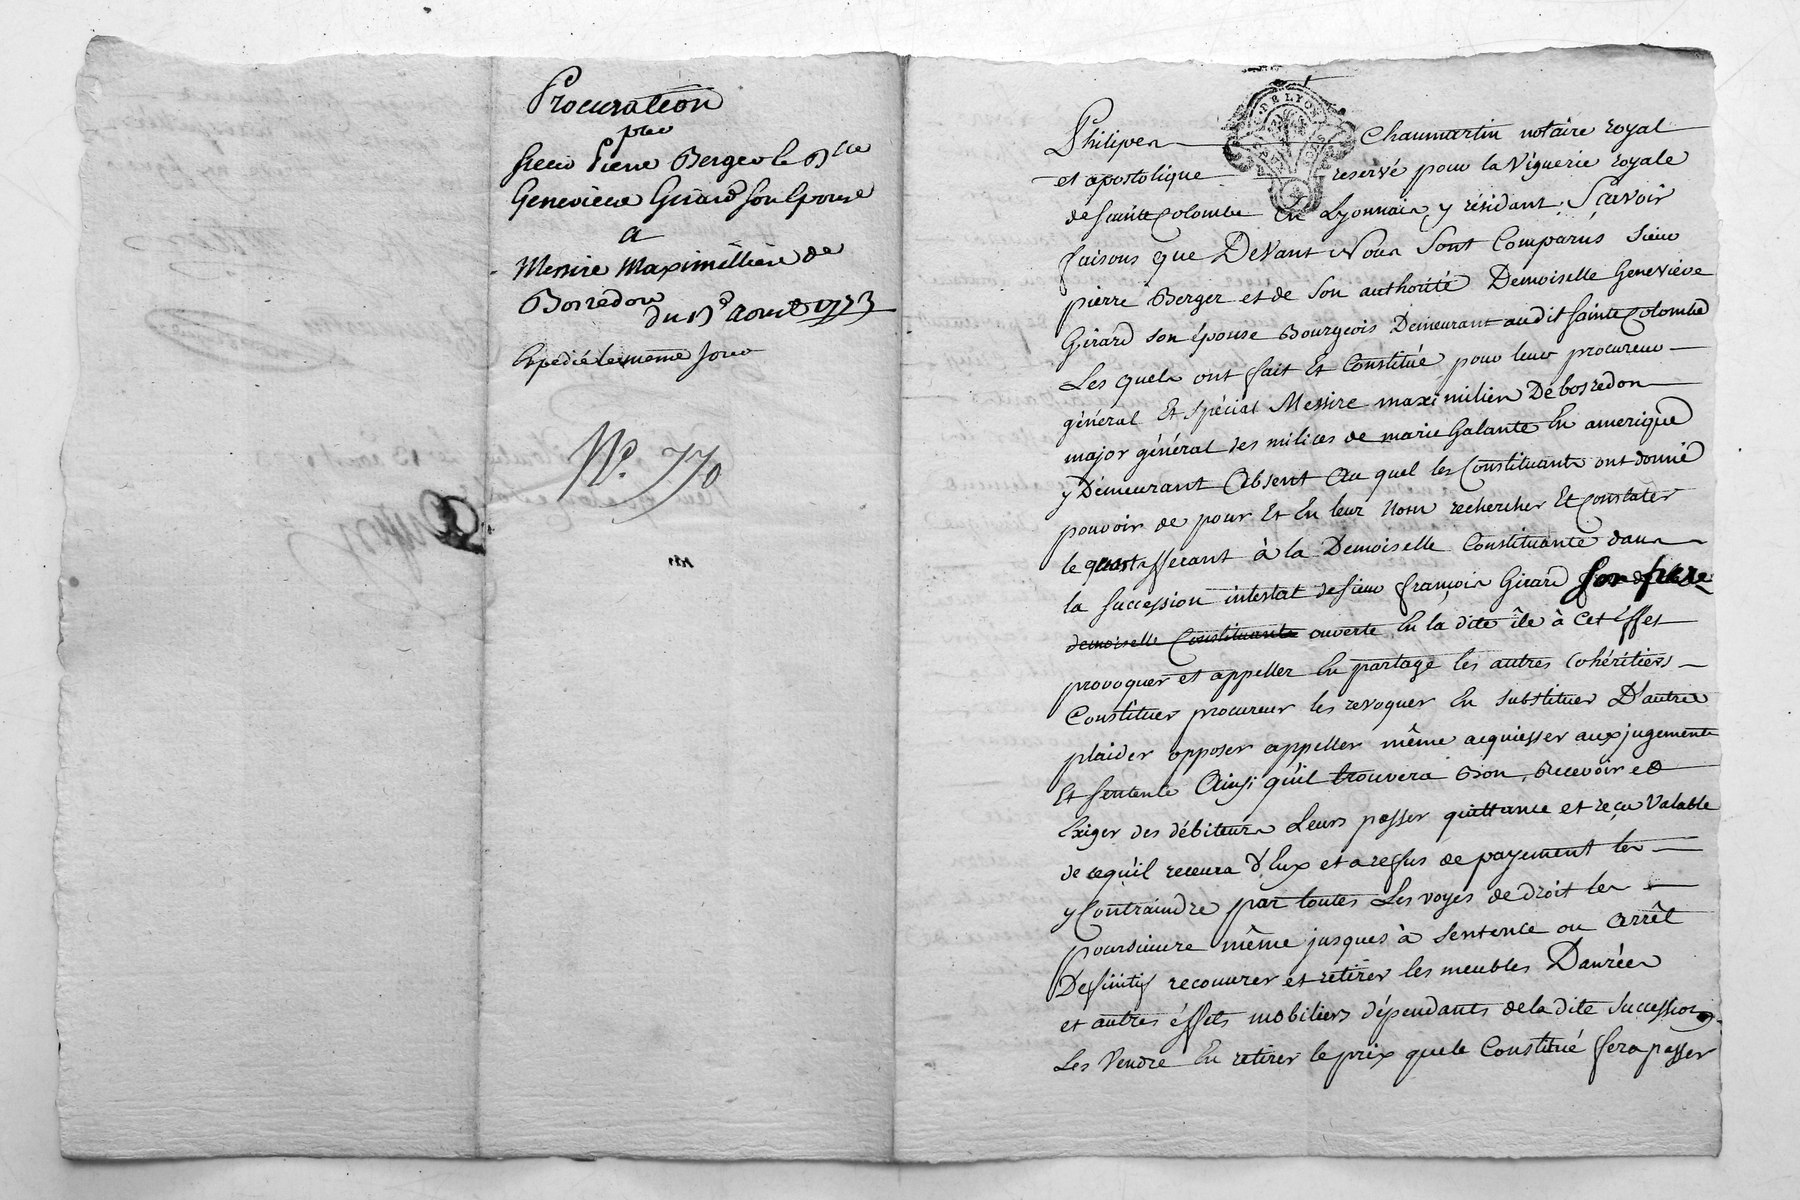 Procuration
par
Sieur Pierre Berger & Dlle
Geneviéve Girard son Epouse
a
Messire Maximillien de
Bosredon
du 13e Aoust 1773
Expedié le meme jour
N°. 770
Philipe Chaumartin notaire royal
et apostolique reservé pour la Viguerie royale
de Sainte Colombe En Lyonnais, y résidant, Sçavoir
faisons que Devant Nous Sont Comparus Sieur
pierre Berger et de Son authorité Demoiselle Geneviéve
Girard son épouse Bourgeois Demeurant audit Sainte Colombe
Lesquels ont fait Et Constitué pour leur procureur
général Et Spécial Messire maximilien De bosredon
major général des milices de marie Galante En amerique
y Demeurant Absent Au quel les Constituants ont donné
pouvoir de pour Et En leur Nom rechercher Et Constater
le quart afferant à la Demoiselle Constituante dans
la Succession intestat de Sieur françois Girard Son frere
demoiselle Constituante ouverte En la dite île à Cet Effet
provoquer et appeller En partage les autres Cohéritiers
Constituer procureur les revoquer En substituer D'autres
plaider opposer appeller même acquiesser aux jugements
Et Sentence Ainsi qu'il trouvera Bon, Recevoir et
Exiger des débiteurs Leurs passer quittance et reçu Valable
de ce qu'il recevra d'Eux et a refus de payement les
y Contraindre par toutes Les voyes de droit les
poursuivre même jusques à Sentence ou Arrêt
Definitif recouvrer et retirer les meubles Danrées
et autres éffets mobiliers dépendants de la dite Succession
Les Vendre En retirer le prix que le Constitué fera passer